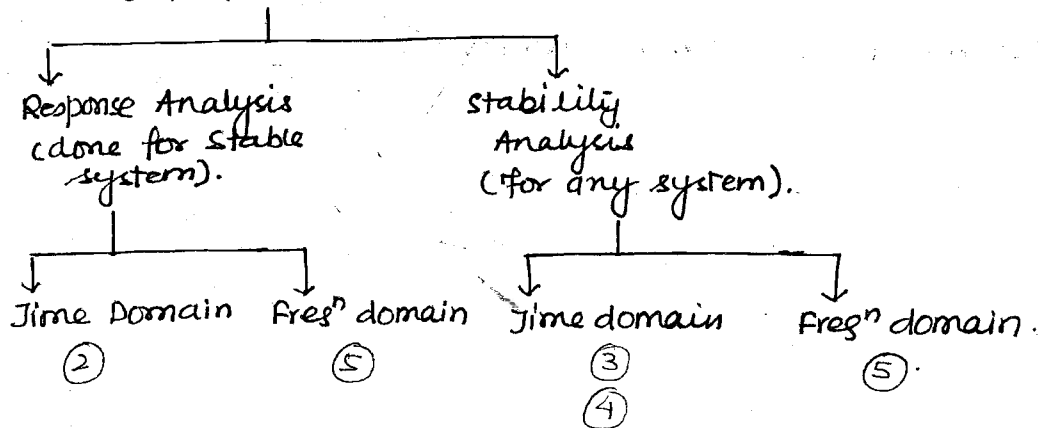 Response Analysis
(done for stable
system).
Stability
Analysis
(for any system).
Time Domain
Freqⁿ domain
Time domain
Freqⁿ domain.
②
⑤
③
⑤.
④